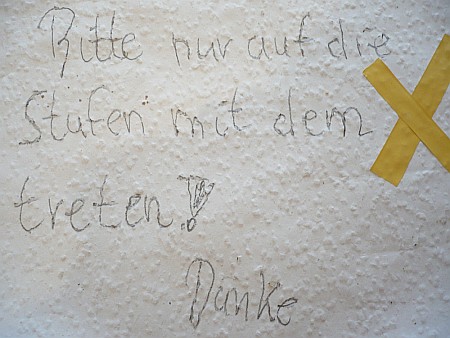 Bitte nur auf die
Stufen mit dem X
treten!
Danke